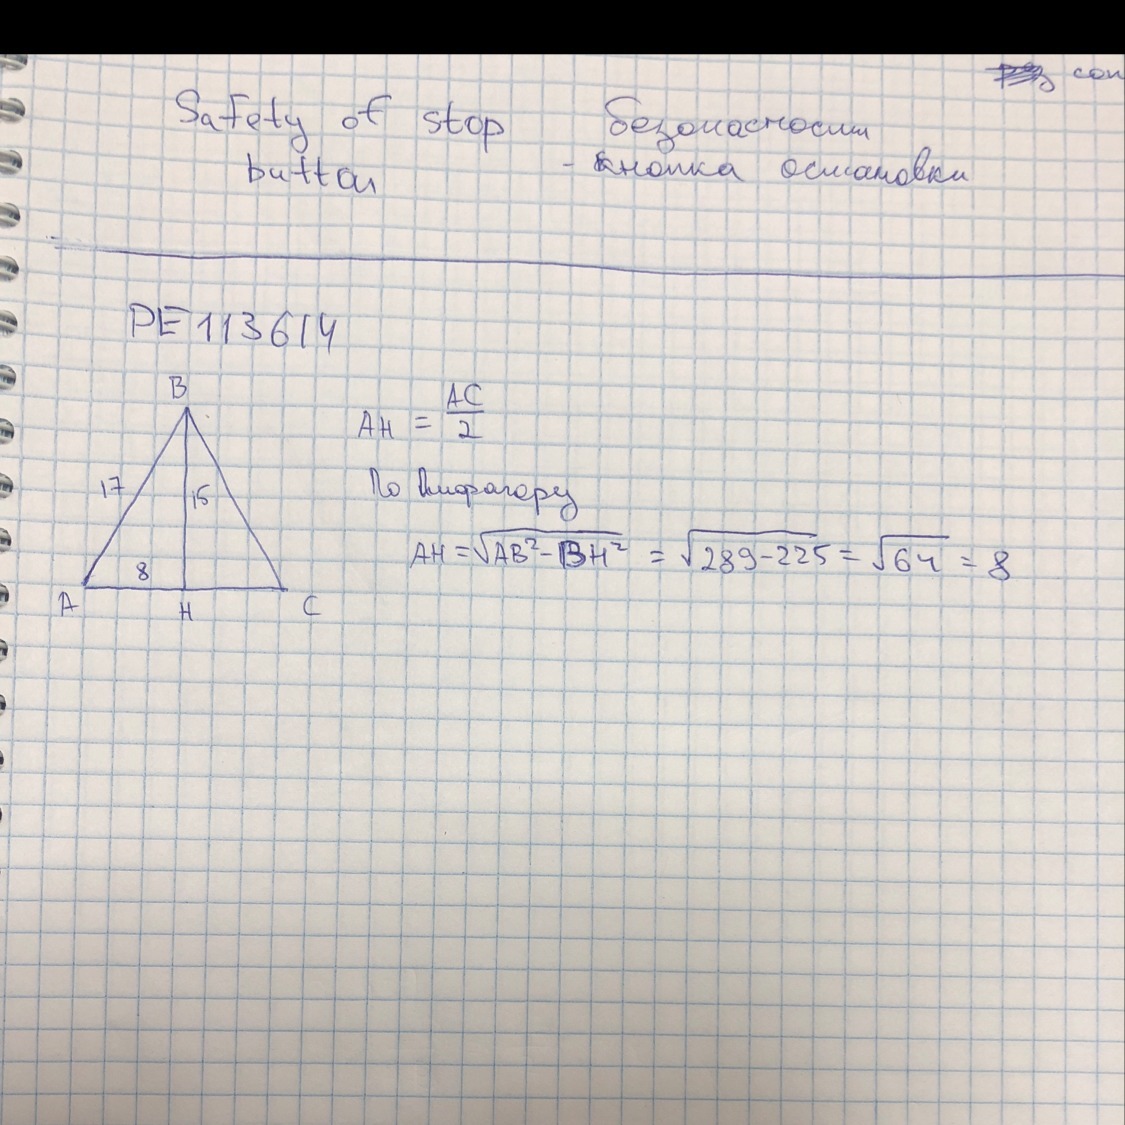 соп
Safety of stop
button
безопасности
- кнопка остановки
РЕ113614
B
17
15
8
A
H
C
AH = AC/2
По Пифагору
AH = √AB² - BH² = √289-225 = √64 = 8